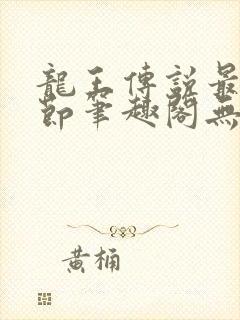 龍王傳說最
節筆趣閣無
黃桶